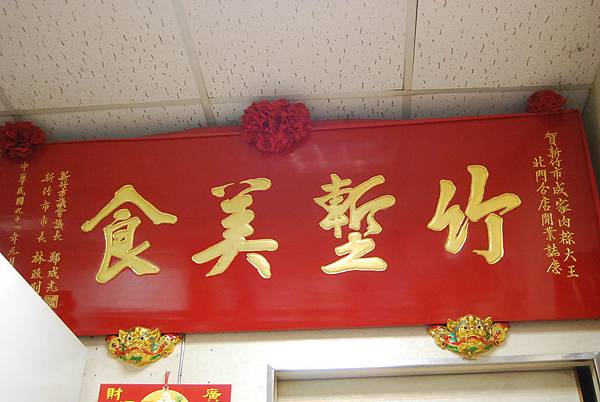 賀新竹市成家肉粽大王
北門分店開業誌慶
竹塹美食
新竹市議會議長 鄭成光
新竹市市長 林政則
中華民國九十
財
廣